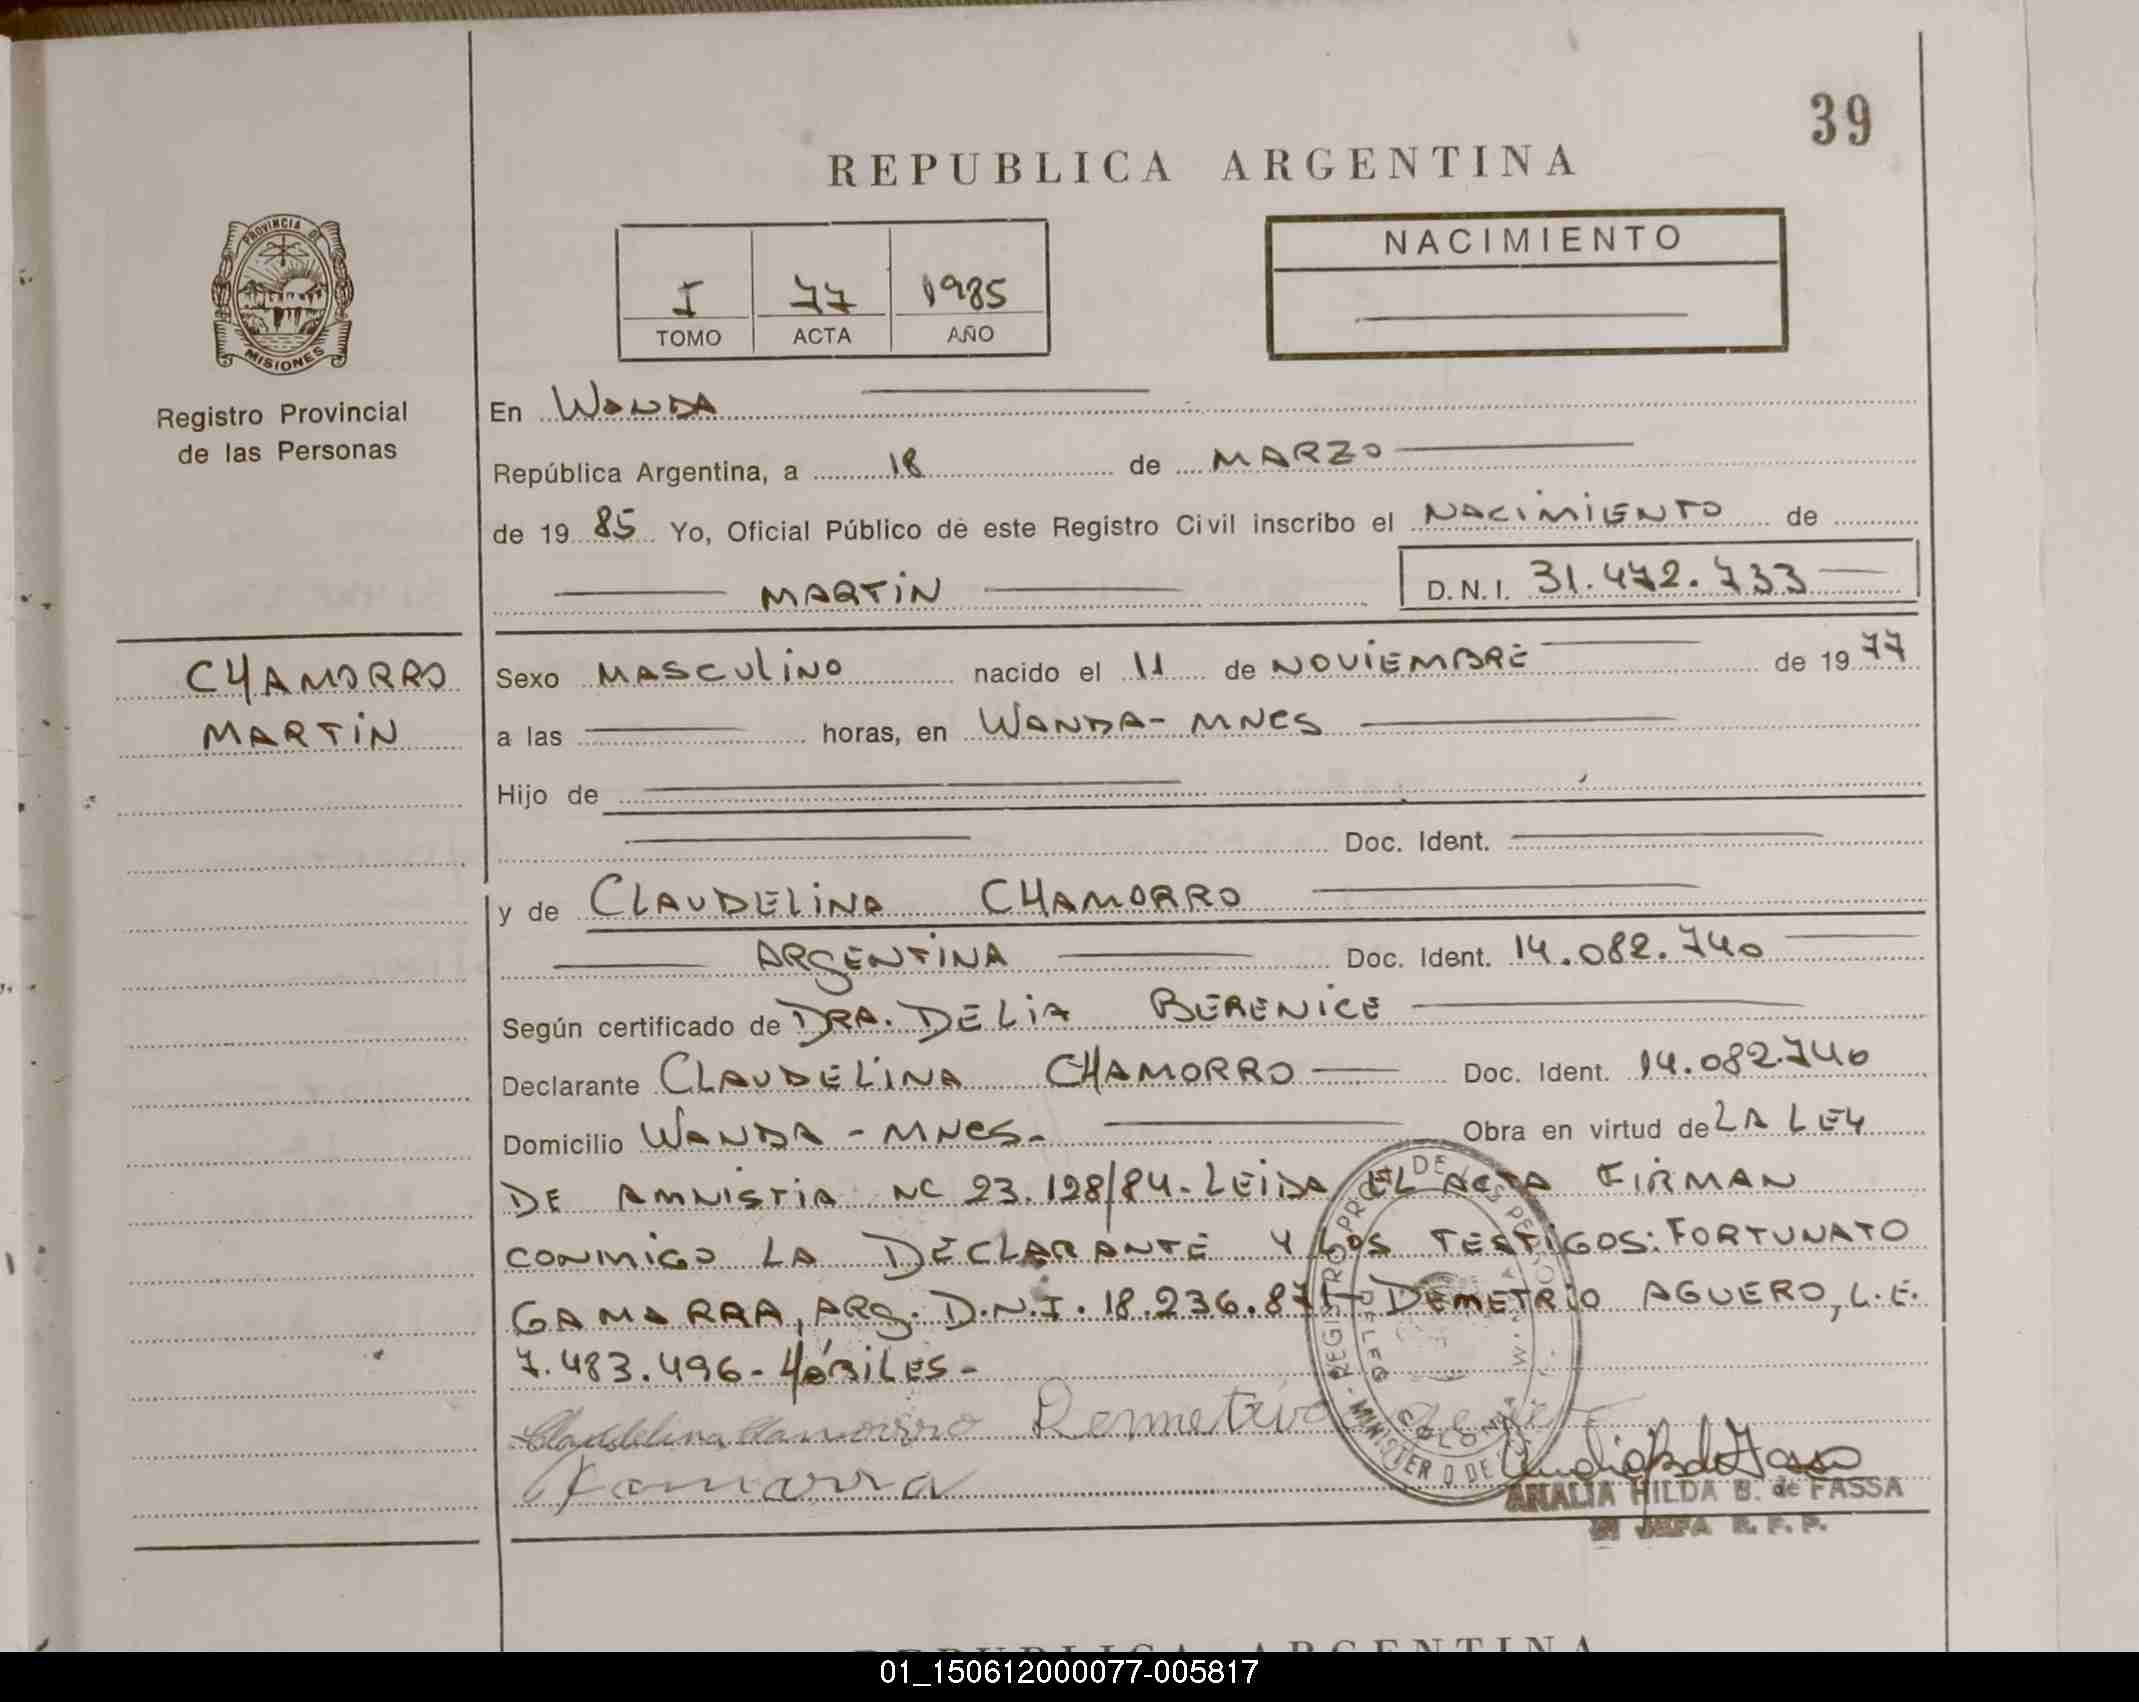 39
REPUBLICA ARGENTINA
PROVINCIA DE
MISIONES
Registro Provincial
de las Personas
I 77 1985
TOMO ACTA AÑO
NACIMIENTO
En WANDA
República Argentina, a 18 de MARZO
de 19 85 Yo, Oficial Público de este Registro Civil inscribo el NACIMIENTO de
MARTIN D.N.I. 31.472.733
CHAMORRO
MARTIN
Sexo MASCULINO nacido el 11 de NOVIEMBRE de 19 77
a las horas, en WANDA - MNES
Hijo de
Doc. Ident.
y de CLAUDELINA CHAMORRO
ARGENTINA Doc. Ident. 14.082.740
Según certificado de DRA. DELIA BERENICE
Declarante CLAUDELINA CHAMORRO Doc. Ident. 14.082.740
Domicilio WANDA - MNES. Obra en virtud de LA LEY
DE AMNISTIA Nº 23.128/84. LEIDA EL ACTA FIRMAN
CONMIGO LA DECLARANTE Y LOS TESTIGOS: FORTUNATO
GAMARRA, ARG. D.N.I. 18.236.871- DEMETRIO AGUERO, L.E.
7.483.496- HÁBILES-
Claudelina Chamorro Demetrio
Gamarra
COLONIA
ANALIA HILDA B. de FASSA
JEFA R. P. P.
REPUBLICA ARGENTINA
01_150612000077-005817